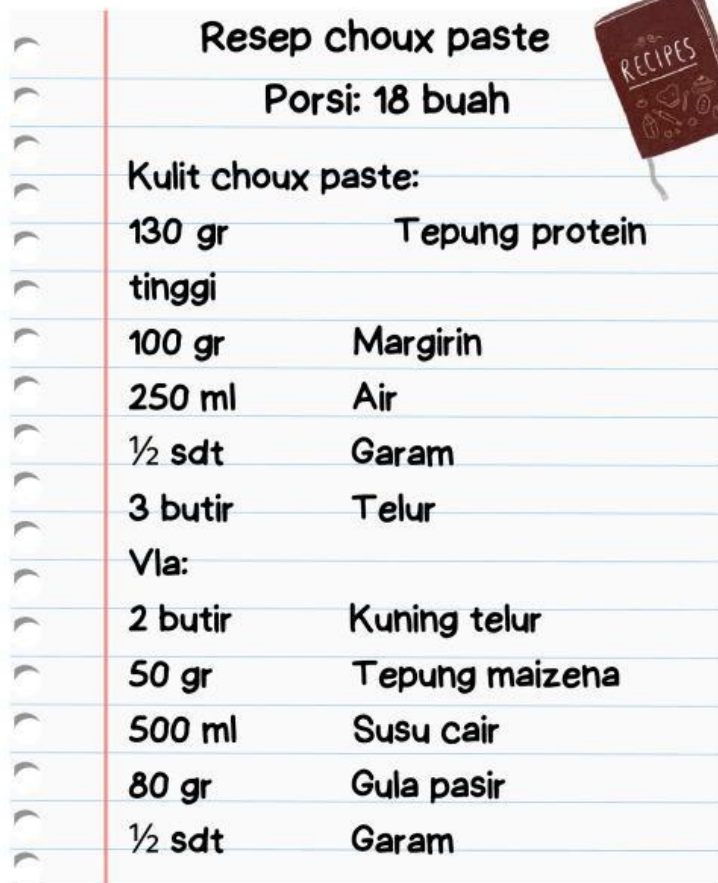 Resep choux paste
RECIPES
Porsi: 18 buah
Kulit choux paste:
130 gr Tepung protein
tinggi
100 gr Margirin
250 ml Air
½ sdt Garam
3 butir Telur
Vla:
2 butir Kuning telur
50 gr Tepung maizena
500 ml Susu cair
80 gr Gula pasir
½ sdt Garam